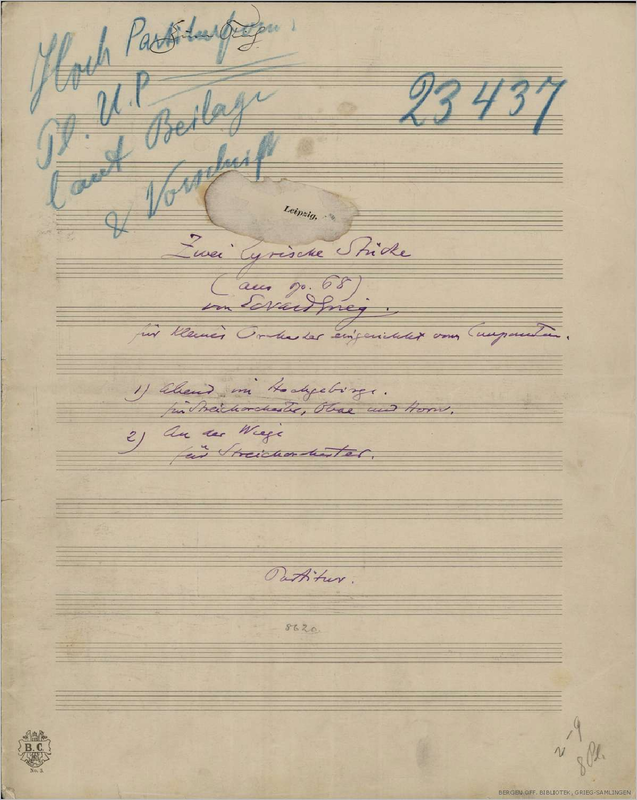 Hoch Partiturform.
Pl. U. P
23437
laut Beilage
& Vorschrift
Leipzig.
Zwei lyrische Stücke
(aus op. 68)
von Edvard Grieg.
für kleines Orchester eingerichtet vom Componisten.
1) Abend im Hochgebirge.
für Streichorchester, Oboe und Horn.
2) An der Wiege
für Streichorchester.
Partitur.
862
B.C.
No. 3
8 Pl.
BERGEN OFF. BIBLIOTEK, GRIEG-SAMLINGEN